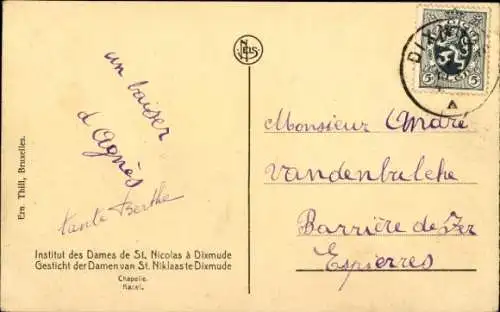 un baiser
d'Agnès
tante Berthe
Ern Thill, Bruxelles.
Institut des Dames de St. Nicolas à Dixmude
Gesticht der Damen van St. Niklaas te Dixmude
Chapelle.
Kapel.
NELS
5 5
DIXM
A
Monsieur André
Vandenbulcke
Barrière de Fer
Espierres